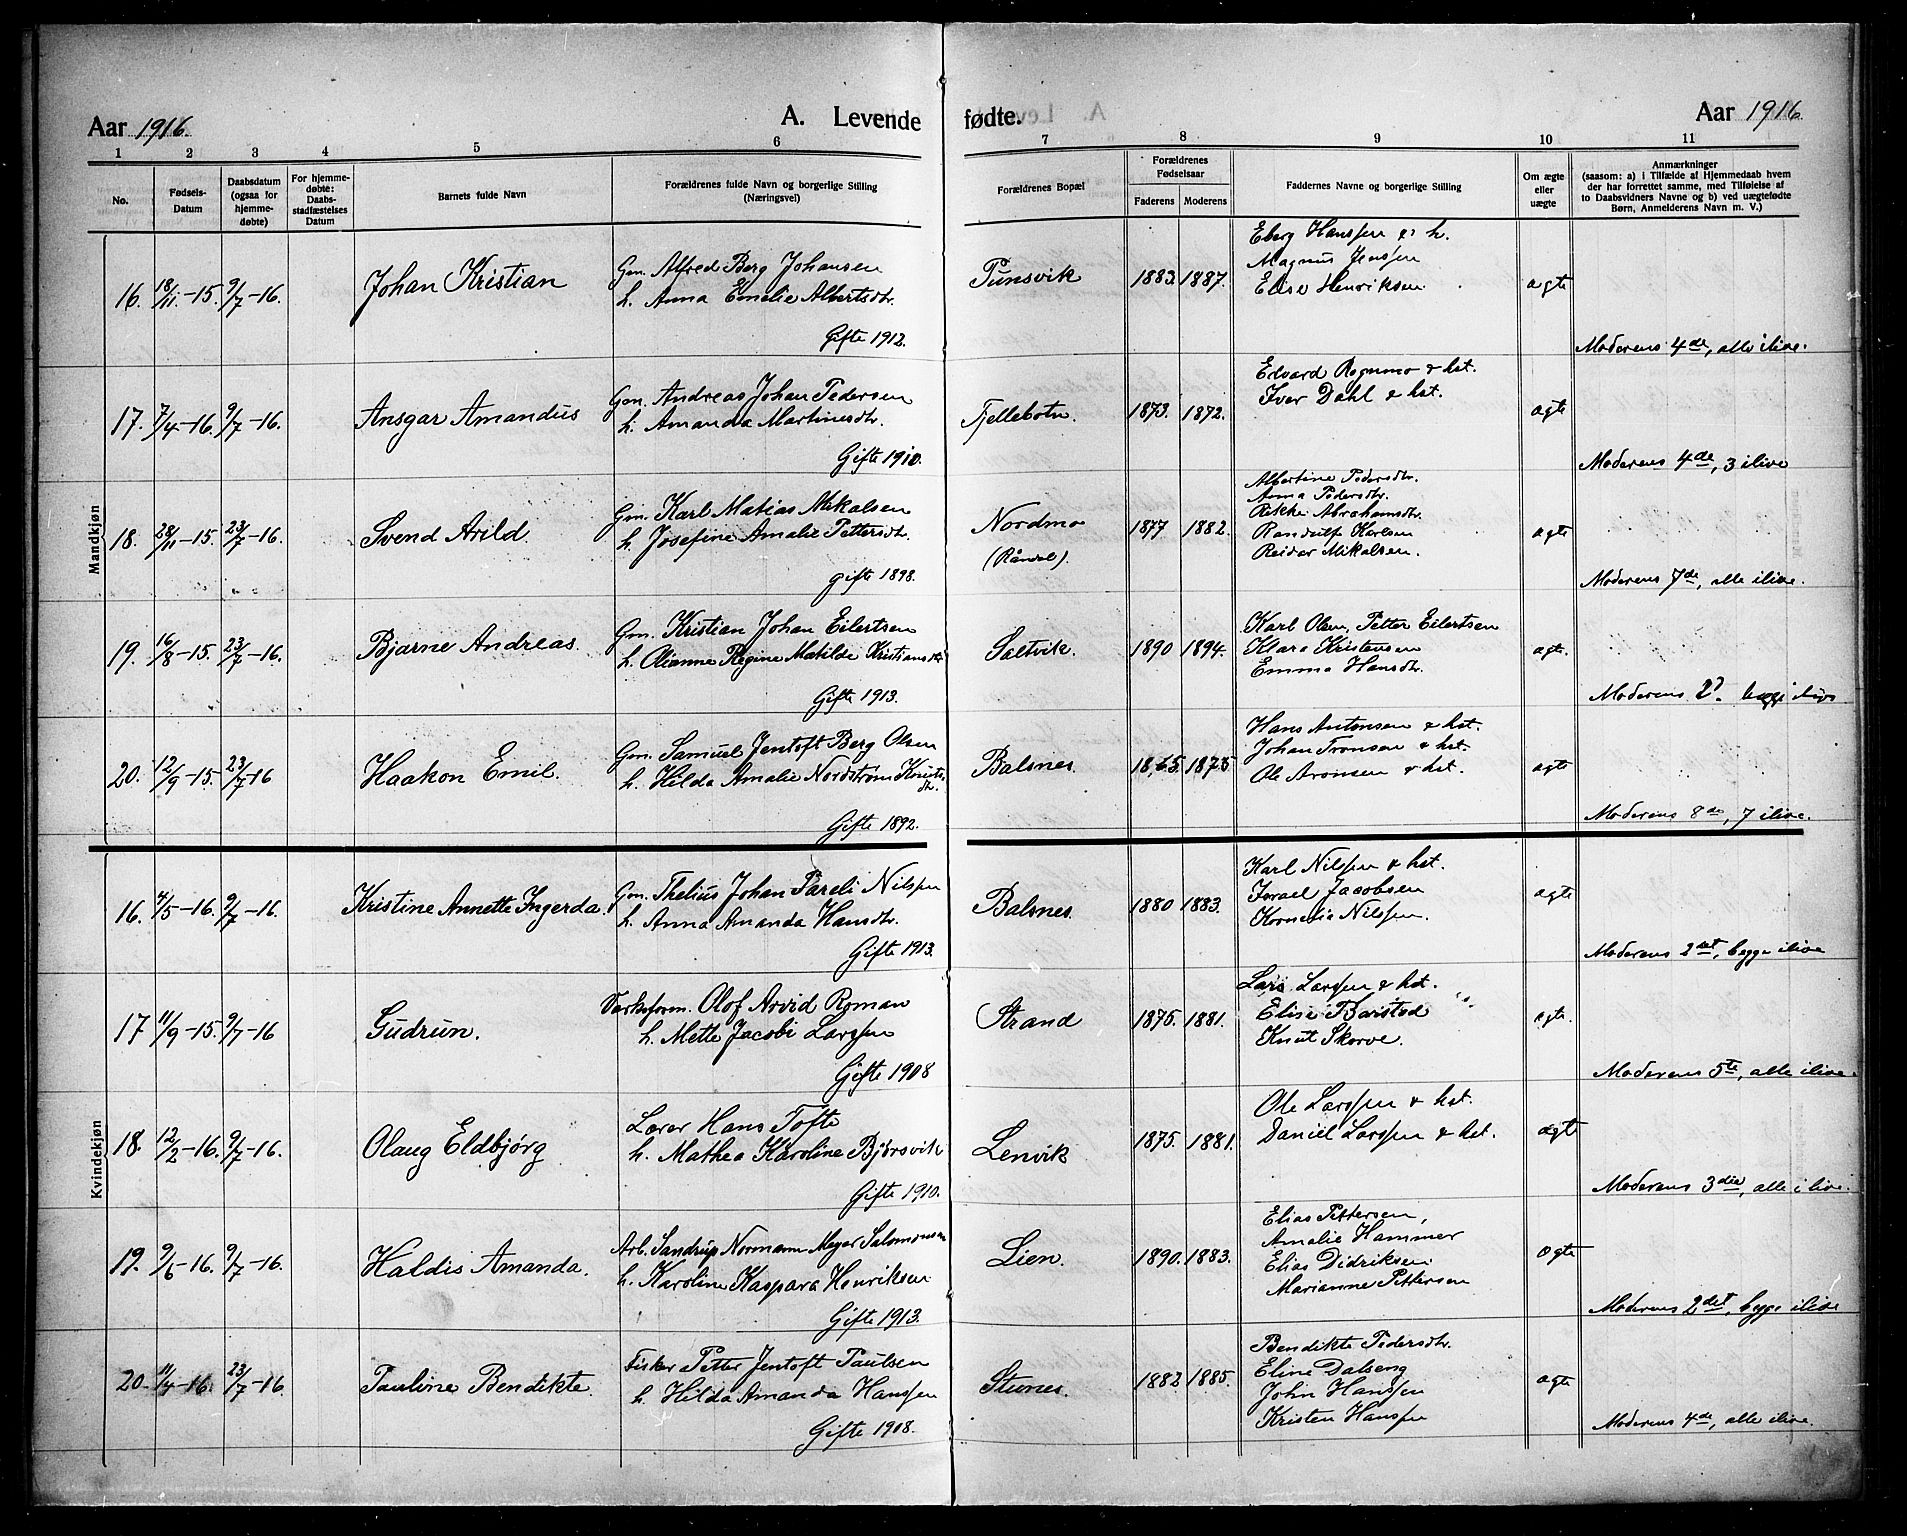 Aar 1916. A. Levende fødte. Aar 1916
1 2 3 4 5 6 7 8 9 10 11
No.
Fødsels-
Datum
Daabsdatum
(ogsaa for
hjemme-
døbte)
For hjemme-
døbte:
Daabs-
stadfæstelses
Datum
Barnets fulde Navn
Forældrenes fulde Navn og borgerlige Stilling
(Næringsvei)
Forældrenes Bopæl
Forældrenes
Fødselsaar
Faderens Moderens
Faddernes Navne og borgerlige Stilling
Om ægte
eller
uægte
Anmærkninger
(saasom: a) i Tilfælde af Hjemmedaab hvem
der har forrettet samme, med Tilføielse af
to Daabsvidners Navne og b) ved uægtefødte
Børn, Anmelderens Navn m. V.)
Mandkjøn
16. 18/11-15. 9/7-16. Johan Kristian
Gm. Alfred Berg Johansen
h. Anna Emelie Albertsdtr.
Gifte 1912.
Tunsvik 1883. 1887.
Eberg Hanssen & h.
Magnus Jenssen
Elise Henriksen
ægte
Moderens 4de, alle ilive.
17. 7/4-16. 9/7-16. Ansgar Amandus
Gm. Andreas Johan Pedersen
h. Amanda Martinusdtr.
Gifte 1910.
Fjellebotn 1873. 1872.
Edvard Rognmo & hst.
Iver Dahl & hst.
ægte
Moderens 4de, 3 ilive
18. 28/11-15. 23/7-16. Svend Arild
Gm. Karl Matias Mikalsen
h. Josefine Amalie Pettersdtr.
gifte 1898.
Nordmo
(Råndal).
1877 1882.
Albertine Pedersdtr.
Anna Pedersdtr.
Rikke Abrahamsdtr.
Randulf Karlsen
Reidar Mikalsen.
ægte
Moderens 7de, alle ilive.
19. 16/8-15. 23/7-16. Bjarne Andreas.
Gm. Kristian Johan Eilertsen
h. Olianne Regine Matilde Kristiansdtr.
Gifte 1913.
Saltvik. 1890 1894.
Karl Olsen, Petter Eilertsen
Klara Kristensen
Emma Hansdtr.
ægte.
Moderens 2? begge ilive
20. 12/9-15. 23/7-16 Haakon Emil.
Gm. Samuel Jentoft Berg Olsen
h. Hilda Amalie Nordstrøm Knuts
dtr.
Gifte 1892.
Balsnes. 1865. 1875
Hans Antonsen & hst.
Johan Tronsen & hst.
Ole Aronsen & hst.
ægte
Moderens 8de, 7 ilive.
Kvindekjøn
16. 4/5-16. 9/7-16. Kristine Annette Ingerda.
Gm. Thelius Johan Pareli Nilssen
h. Anna Amanda Hansdtr.
Gifte 1913.
Balsnes. 1880 1883.
Karl Nilssen & hst.
Israel Jacobsen
Kornelia Nilssen.
ægte
Moderens 2det, begge ilive
17 11/9-15. 9/7-16 Gudrun.
Værksform. Olof Arvid Roman
h. Mette Jacobi Larssen
Gifte 1908
Strand 1875. 1881.
Lars Larssen & hst.
Elise Barstad
Knut Skorve.
ægte.
Moderens 5te, alle ilive.
18. 12/2-16. 9/7-16. Olaug Eldbjørg
Lærer Hans Tofte
h. Mathea Karoline Bjørsvik
Gifte 1910.
Lenvik 1875. 1881.
Ole Larssen & hst.
Daniel Larssen & hst.
ægte
Moderens 3die, alle ilive.
19. 9/6-16. 9/7-16. Haldis Amanda.
Arb. Sandrup Normann Meyer Salomonsen
h. Karoline Kaspara Henriksen
Gifte 1913.
Lien. 1890. 1883.
Elias Pettersen,
Amalie Hammer
Elias Didriksen
Marianne Pettersen
ægte
Moderens 2det, begge ilive
20. 11/4-16. 23/7-16. Pauline Bendikte.
Fisker Petter Jentoft Paulsen
h. Hilda Amanda Hanssen
Gifte 1908.
Stunes. 1882 1885.
Bendikte Pedersdtr.
Eline Dalseng
John Hanssen
Kristen Hanssen
ægte
Moderens 4de, alle ilive.